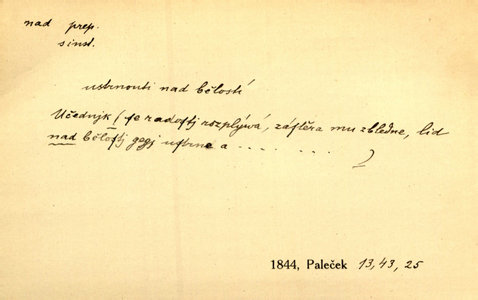 nad prep.
s inst.
ustrnouti nad bělostí
Učednjk (se radostj rozplývá, zástěra mu zbledne, lid
nad bělostj gegj ustrne a . . . . . . . . )
1844, Paleček 13, 43, 25